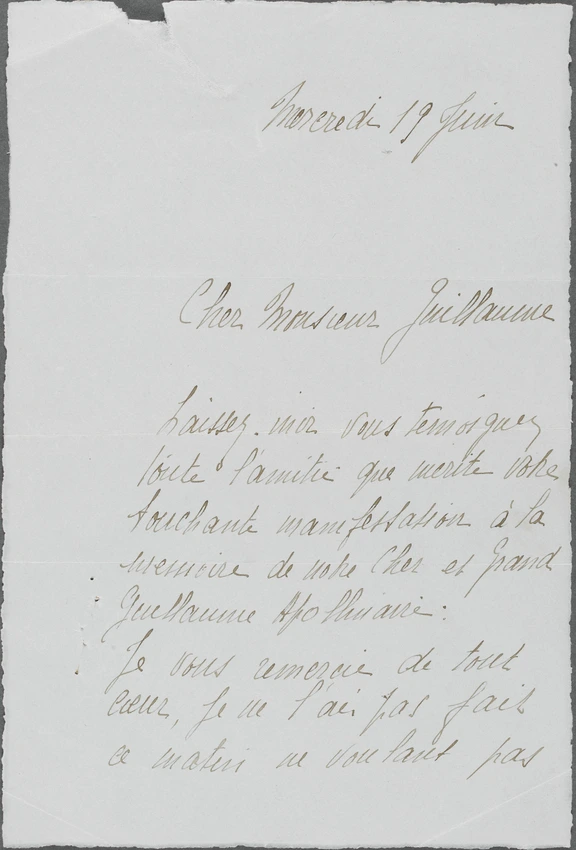 Mercredi 19 Juin
Cher Monsieur Guillaume
Laissez-moi vous temoigner
toute l'amitie que merite votre
touchante manifestation à la
memoire de notre Cher et Grand
Guillaume Apollinaire.
Je vous remercie de tout
cœur, Je ne l'ai pas fait
ce matin ne voulant pas